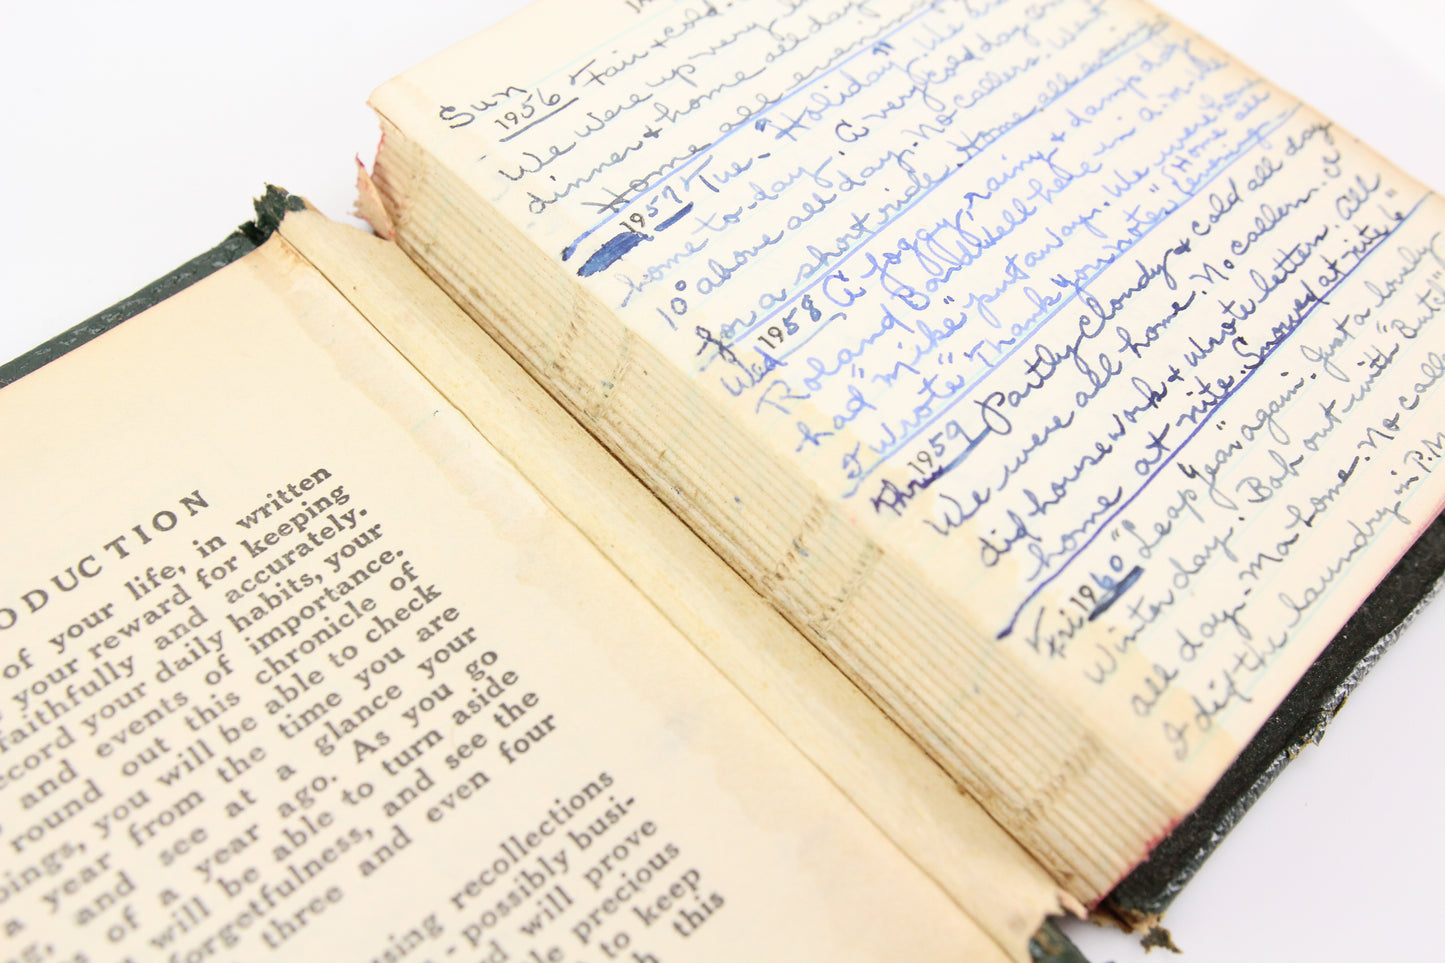 ODUCTION
of your life, in written
your reward for keeping
faithfully and accurately.
record your daily habits, your
and events of importance.
round out this chronicle of
you will be able to check
a year from the time you are
and see at a glance your
of a year ago. As you go
will be able to turn aside
forgetfulness, and see the
three and even four
using recollections
- possibly busi-
and will prove
precious
to keep
this
Sun 1956 Fair & cold.
We were up very
dinner & home all day
Home all evening
1957 Tue - "Holiday" We
home to-day. A very cold day
10° above all day. No callers. Went
for a short ride. Home all evening
Wed 1958 A foggy, rainy & damp day
Roland Bardwell here in A.M. He
had "Mike" put away. We were home
I wrote "Thank you notes" Home all evening
Thr 1959 Partly cloudy & cold all day
We were all home. No callers. I
did housework & wrote letters. All
home at nite. Snowed at nite"
Fri 1960 "Leap Year" again. Just a lovely
Winter day. Bob out with "Butch"
all day - Ma home. No calle
I did the laundry in P.M